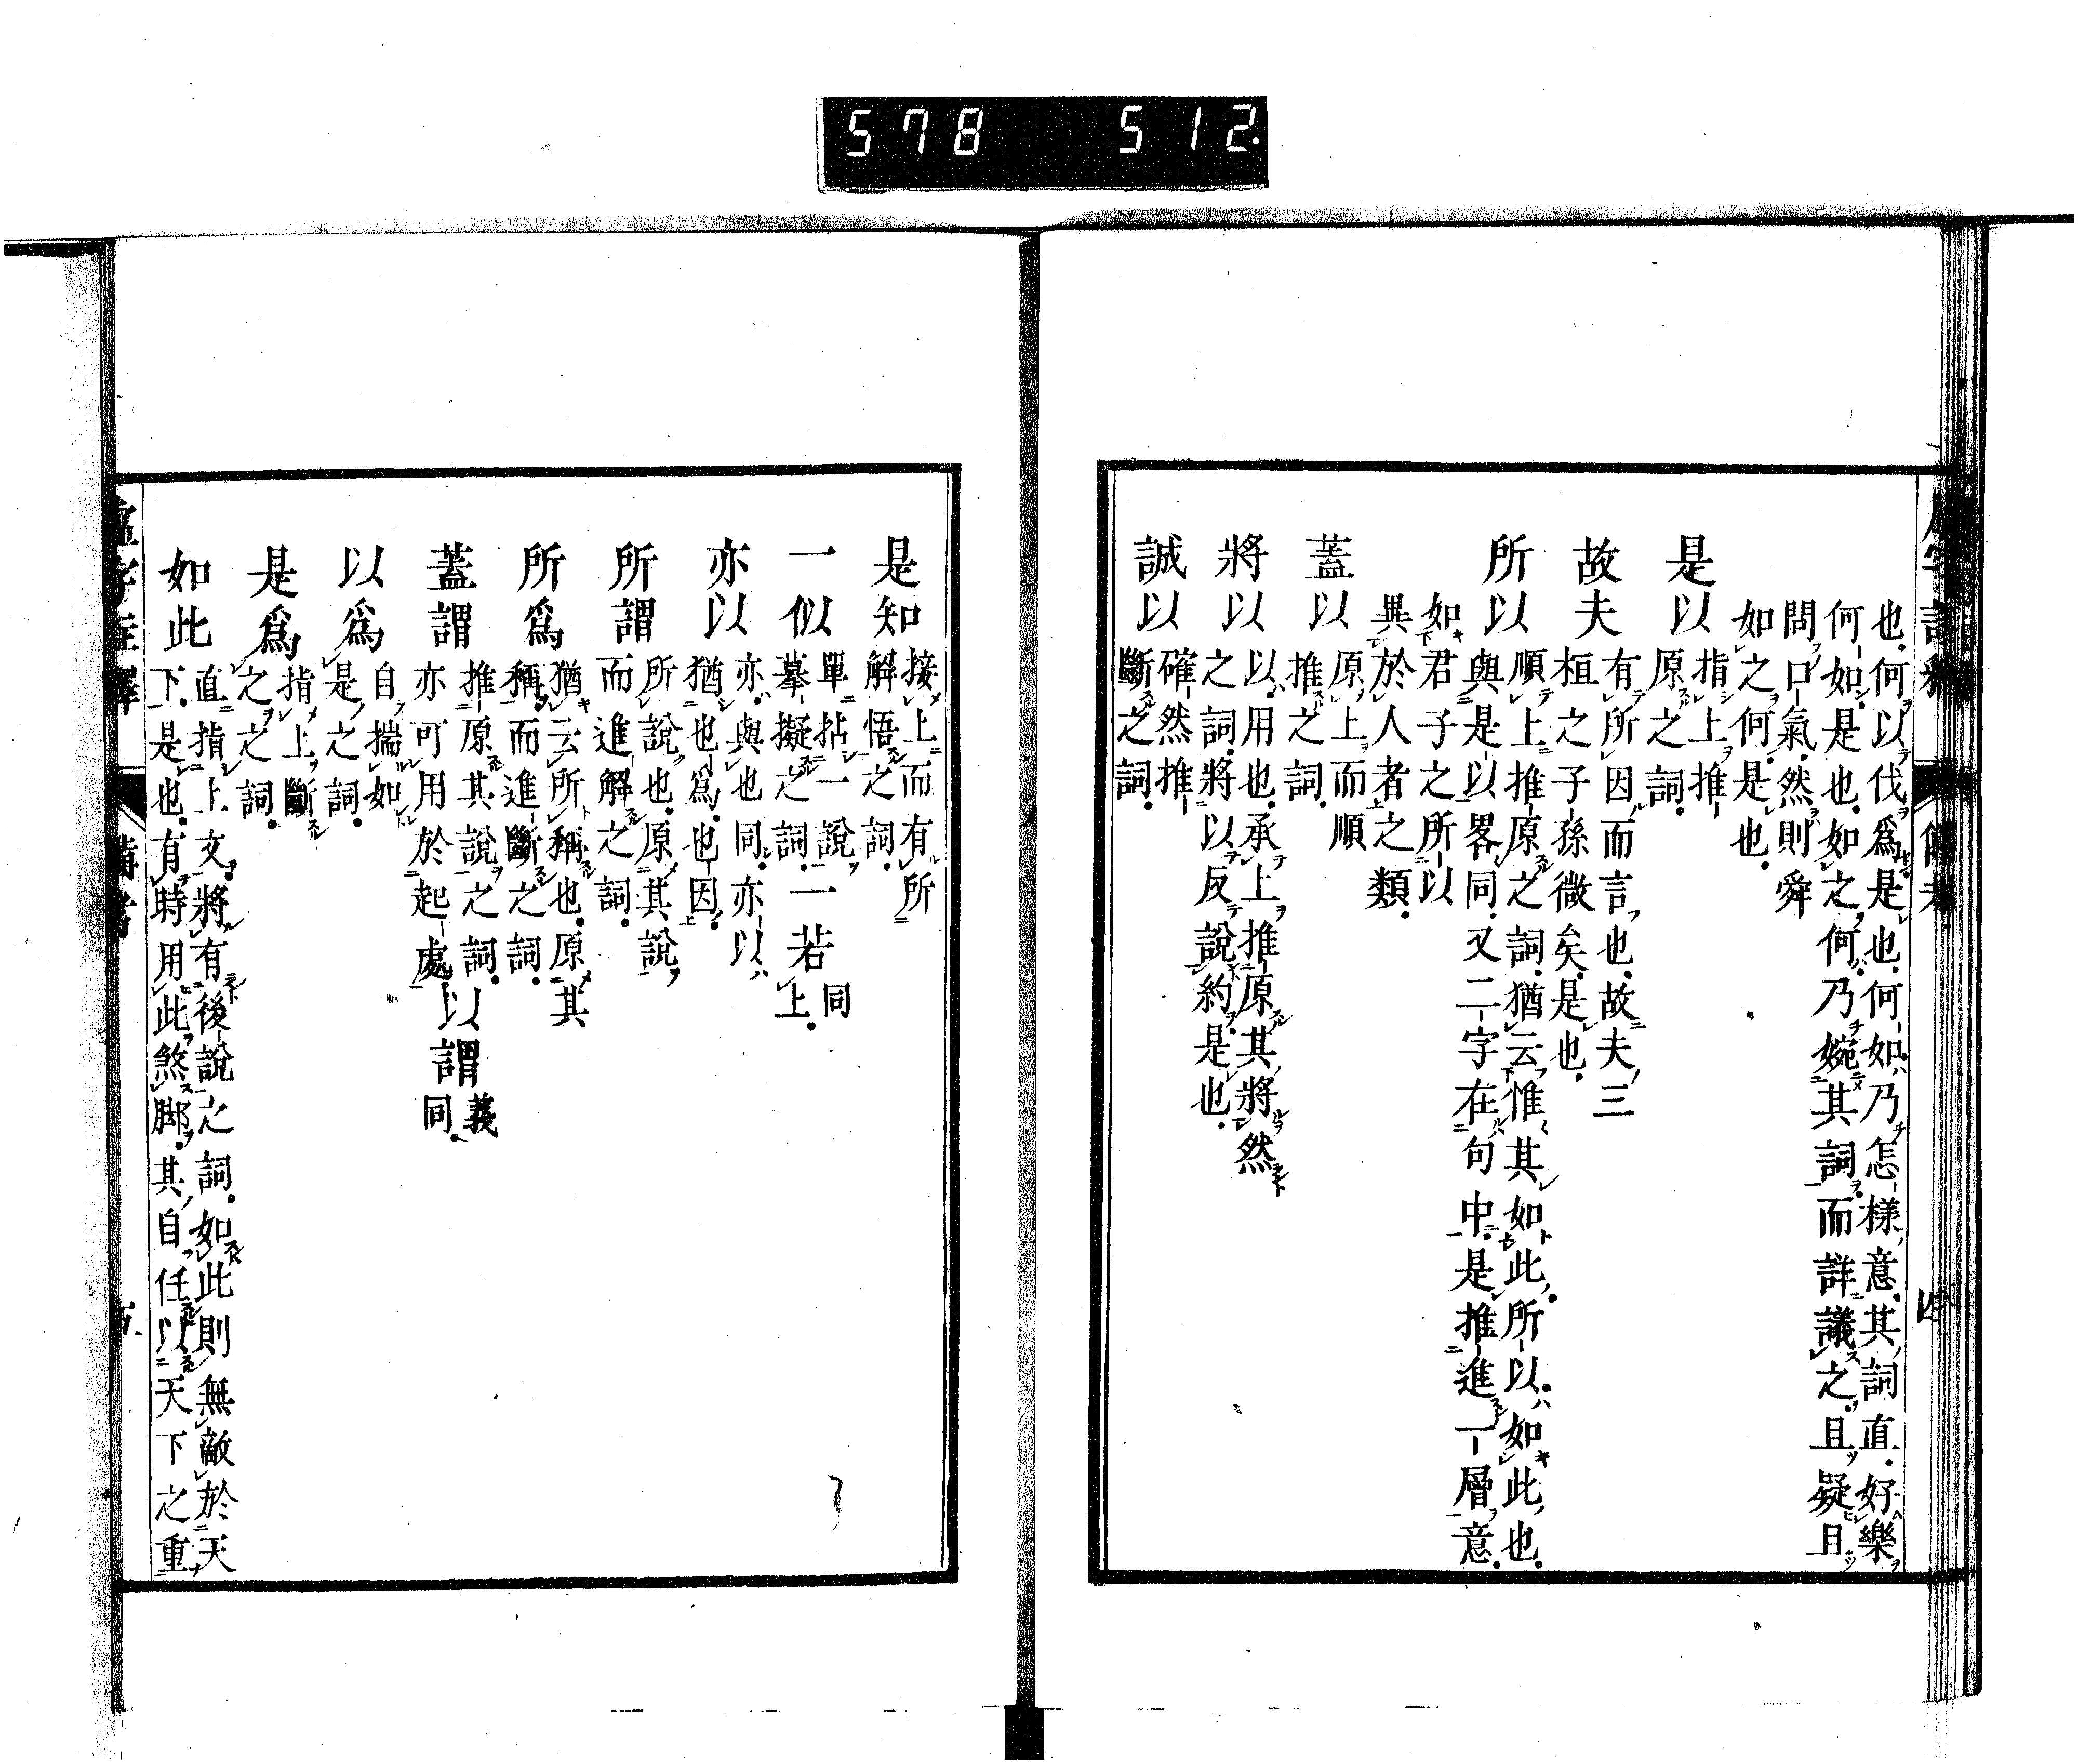 578 512.
也何以伐爲是也何如乃怎樣意其詞直好樂
何如是也如之何乃婉其詞而詳議之且疑且
問口氣然則舜
如之何是也
是以
指上推
原之詞
故夫
有所因而言也故夫三
桓之子孫微矣是也
所以
順上推原之詞猶云惟其如此所以如此也
與是以畧同又二字在句中是推進一層意
如君子之所以
異於人者之類
蓋以
原上而順
推之詞
將以
以用也承上推原其將然
之詞將以反說約是也
誠以
確然推
斷之詞
是知
接上而有所
解悟之詞
一似
單拈一說
摹擬之詞
一若
同
上
亦以
亦與也同亦以
猶也爲也因
所謂
所說也原其說
而進解之詞
所爲
猶云所稱也原其
稱而進斷之詞
蓋謂
推原其說之詞
亦可用於起處
以謂
義
同
以爲
自揣如
是之詞
是爲
指上斷
之之詞
如此
直指上文將有後說之詞如此則無敵於天
下是也有時用此煞脚其自任以天下之重
虛字註釋 備考 五